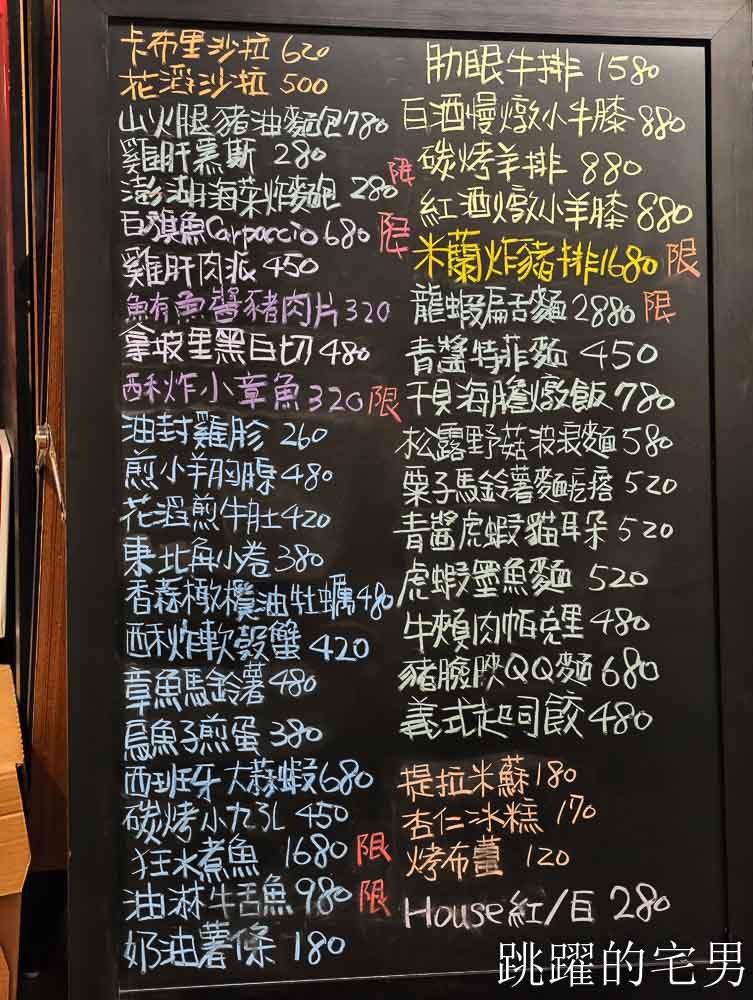 卡布里沙拉 620
花滔沙拉 500
山火腿豬油麵包780
雞肝慕斯 280
澎湖海菜炸麵包 280 限
白旗魚Carpaccio 680 限
雞肝肉派 450
鮪魚醬豬肉片 320
拿坡里黑白切 480
酥炸小章魚 320 限
油封雞胗 260
煎小羊胸腺 480
花滔煎牛肚 420
東北角小卷 380
香蒜橄欖油牡蠣 480
酥炸軟殼蟹 420
章魚馬鈴薯 480
烏魚子煎蛋 380
西班牙大蒜蝦 680
碳烤小九孔 450
狂水煮魚 1680 限
油淋牛舌魚 980 限
奶油薯條 180
肋眼牛排 1580
白酒慢燉小牛膝 880
碳烤羊排 880
紅酒燉小羊膝 880
米蘭炸豬排1680 限
龍蝦扁舌麵 2880 限
青醬特菲麵 450
干貝海膽燉飯 780
松露野菇波浪麵 580
栗子馬鈴薯麵疙瘩 520
青醬虎蝦貓耳朵 520
虎蝦墨魚麵 520
牛頰肉帕克里 480
豬臉頰QQ麵 680
義式起司餃 480
提拉米蘇 180
杏仁冰糕 170
烤布蕾 120
House紅/白 280
跳躍的宅男